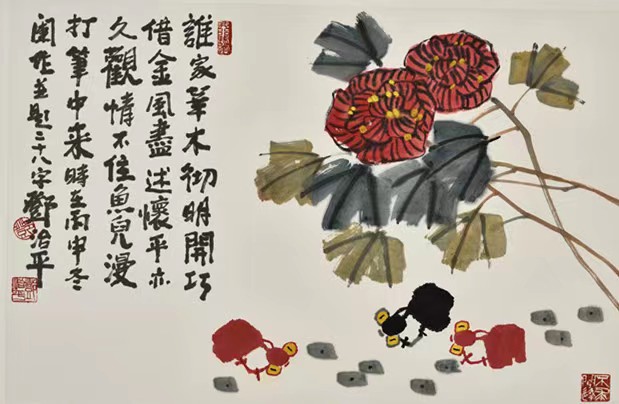 誰家華木彻明開巧
借金風盡述懷平亦
久觀情不住魚兒漫
打筆中来時在丙申冬
閩雅並題二十八字鄧治平